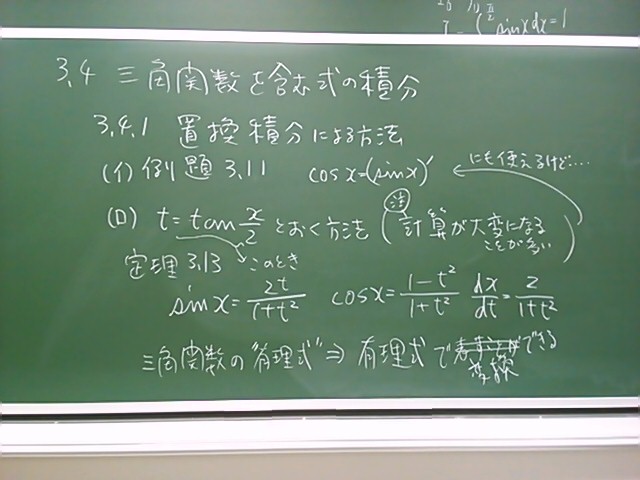 ∫ sinxdx=1
3.4 三角関数を含む式の積分
3.4.1 置換積分による方法
(イ) 例題 3.11 cosx=(sinx)′ にも使えるけど…
(ロ) t=tan x/2 とおく方法 (注 計算が大変になることが多い)
定理 3.13 このとき
sinx=2t/1+t² cosx=1-t²/1+t² dx/dt=2/1+t²
三角関数の"有理式"⇒有理式で変換できる